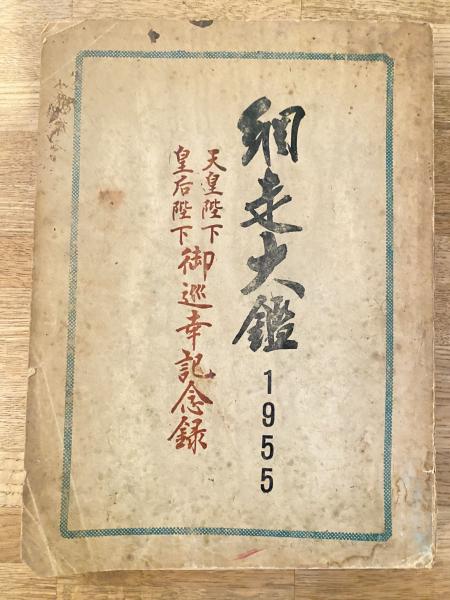 網走大鑑1955
天皇陛下
皇后陛下
御巡幸記念録